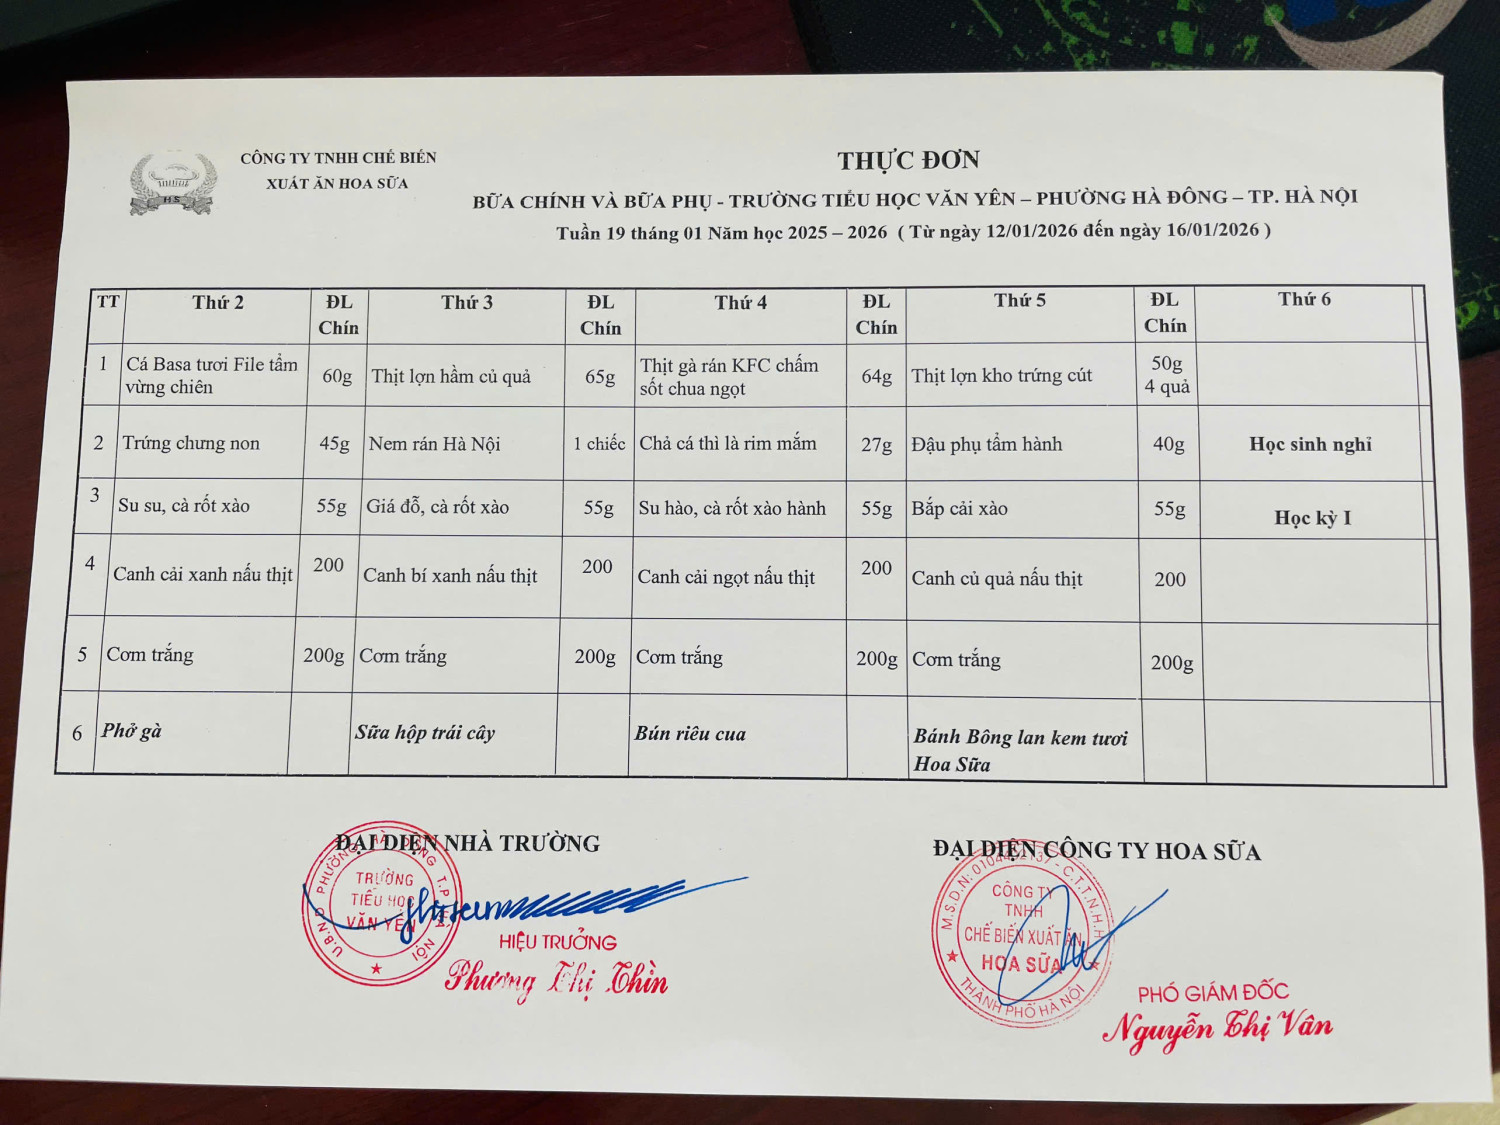 CÔNG TY TNHH CHẾ BIẾN
XUẤT ĂN HOA SỮA
HS
THỰC ĐƠN
BỮA CHÍNH VÀ BỮA PHỤ - TRƯỜNG TIỂU HỌC VĂN YÊN – PHƯỜNG HÀ ĐÔNG – TP. HÀ NỘI
Tuần 19 tháng 01 Năm học 2025 – 2026 ( Từ ngày 12/01/2026 đến ngày 16/01/2026 )
TT Thứ 2 ĐL Chín Thứ 3 ĐL Chín Thứ 4 ĐL Chín Thứ 5 ĐL Chín Thứ 6
1 Cá Basa tươi File tẩm vừng chiên 60g Thịt lợn hầm củ quả 65g Thịt gà rán KFC chấm sốt chua ngọt 64g Thịt lợn kho trứng cút 50g 4 quả
2 Trứng chưng non 45g Nem rán Hà Nội 1 chiếc Chả cá thì là rim mắm 27g Đậu phụ tẩm hành 40g Học sinh nghỉ
3 Su su, cà rốt xào 55g Giá đỗ, cà rốt xào 55g Su hào, cà rốt xào hành 55g Bắp cải xào 55g Học kỳ I
4 Canh cải xanh nấu thịt 200 Canh bí xanh nấu thịt 200 Canh cải ngọt nấu thịt 200 Canh củ quả nấu thịt 200
5 Cơm trắng 200g Cơm trắng 200g Cơm trắng 200g Cơm trắng 200g
6 Phở gà Sữa hộp trái cây Bún riêu cua Bánh Bông lan kem tươi Hoa Sữa
ĐẠI DIỆN NHÀ TRƯỜNG
U.B.N.D PHƯỜNG HÀ ĐÔNG T.P HÀ NỘI
TRƯỜNG
TIỂU HỌC
VĂN YÊN
HIỆU TRƯỞNG
Phương Thị Thìn
ĐẠI DIỆN CÔNG TY HOA SỮA
C.T.T.N.H.H
CÔNG TY
TNHH
CHẾ BIẾN XUẤT ĂN
HOA SỮA
THÀNH PHỐ HÀ NỘI
PHÓ GIÁM ĐỐC
Nguyễn Thị Vân